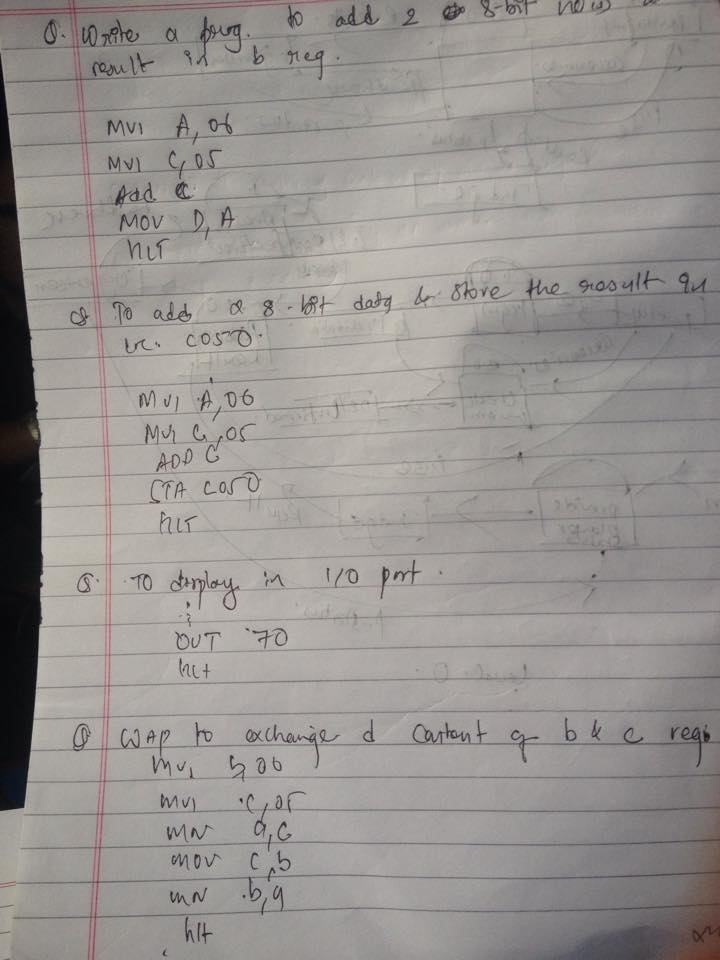 Q. Write a prog. to add 2 8-bit no's
result in b reg.
MVI A, 06
MVI C, 05
Add C
MOV D, A
HLT
Q To add 2 8-bit data & store the result in
loc. C050.
MVI A, 06
MVI C, 05
ADD C
STA C050
HLT
Q. TO display in I/O port.
:
OUT 70
hlt
Q WAP to exchange d content of b & c regs
MVI b, 06
MVI C, 05
MOV a, C
MOV C, b
MOV b, a
hlt